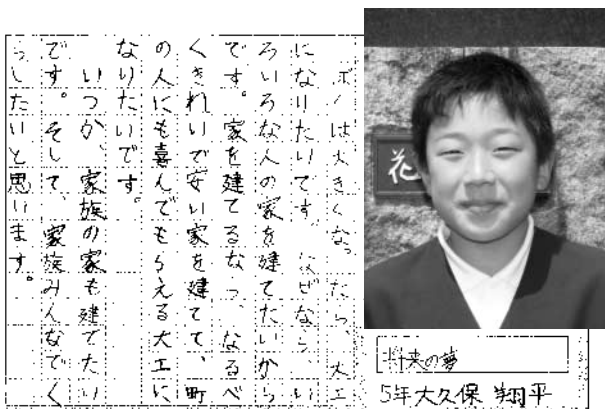 将来の夢
5年大久保 翔平
ボクは大きくなったら、大工
になりたいです。なぜなら、い
ろいろな人の家を建てたいから
です。家を建てるなら、なるべ
くきれいで安い家を建てて、町
の人にも喜んでもらえる大工に
なりたいです。
いつか、家族の家も建てたい
です。そして、家族みんなでく
らしたいと思います。
花